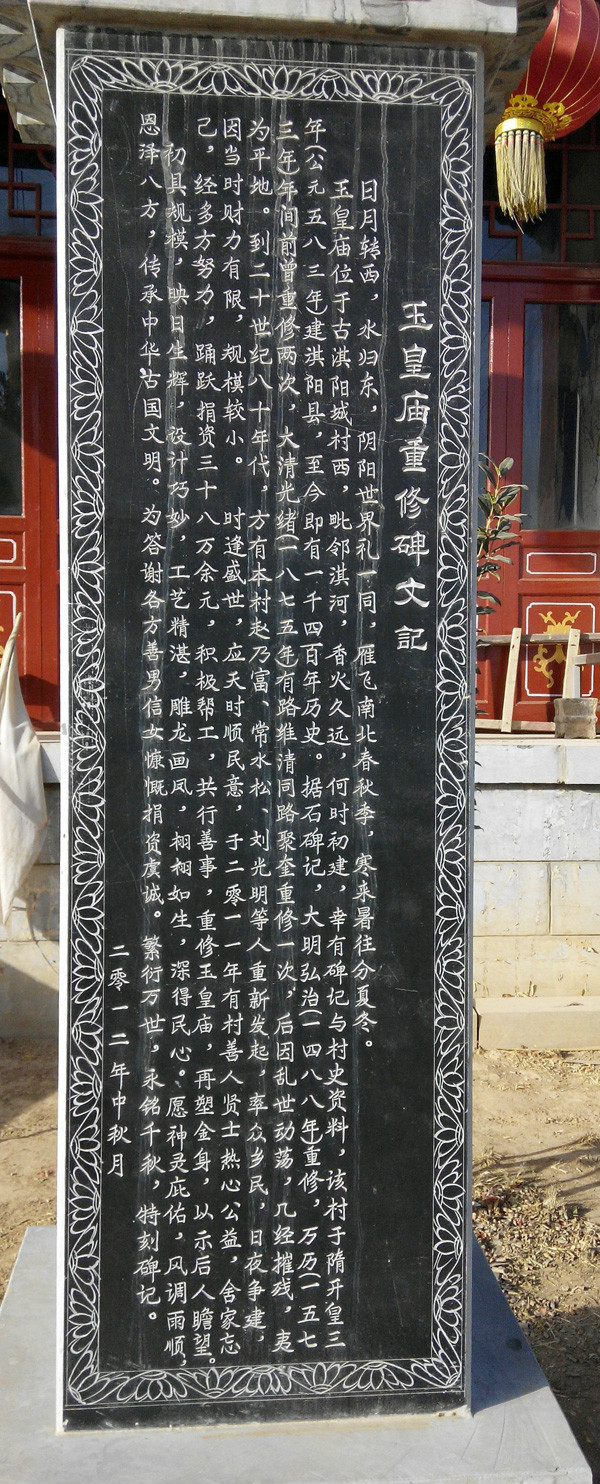 玉皇庙重修碑文记
日月转西，水归东，阴阳世界礼一同，雁飞南北春秋季，寒来暑往分夏冬。
玉皇庙位于古淇阳城村西，毗邻淇河，香火久远，何时初建，幸有碑记与村史资料，该村于隋开皇三
年(公元五八三年)建淇阳县，至今即有一千四百年历史。据石碑记，大明弘治(一四八八年)重修，万历(一五七
三年)年间前曾重修两次，大清光绪(一八七五年)有路维清同路聚奎重修一次，后因乱世动荡，几经摧残，夷
为平地。到二十世纪八十年代，方有本村赵乃富、常水松、刘光明等人重新发起，率众乡民，日夜争建，
因当时财力有限，规模较小。时逢盛世，应天时顺民意，于二零一一年有村善人贤士热心公益，舍家忘
己，经多方努力，踊跃捐资三十八万余元，积极帮工，共行善事，重修玉皇庙，再塑金身，以示后人瞻望。
初具规模，映日生辉，设计巧妙，工艺精湛，雕龙画凤，栩栩如生，深得民心。愿神灵庇佑，风调雨顺，
恩泽八方，传承中华古国文明。为答谢各方善男信女慷慨捐资虔诚。繁衍万世，永铭千秋，特刻碑记。
二零一二年中秋月